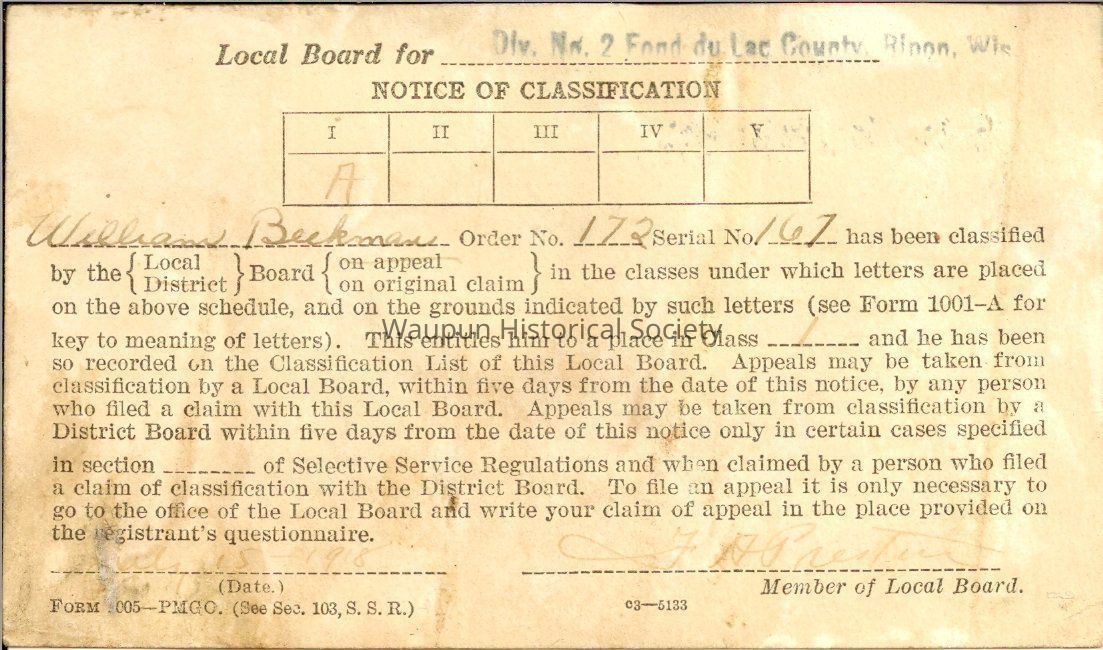 Local Board for Div. No. 2 Fond du Lac County, Ripon, Wis
NOTICE OF CLASSIFICATION
I II III IV V
A
William Beekman Order No. 172 Serial No. 167 has been classified
by the { Local } Board { on appeal } in the classes under which letters are placed
District on original claim
on the above schedule, and on the grounds indicated by such letters (see Form 1001–A for
Waupun Historical Society
key to meaning of letters). This entitles him to a place in Class 1 and he has been
so recorded on the Classification List of this Local Board. Appeals may be taken from
classification by a Local Board, within five days from the date of this notice, by any person
who filed a claim with this Local Board. Appeals may be taken from classification by a
District Board within five days from the date of this notice only in certain cases specified
in section -------- of Selective Service Regulations and when claimed by a person who filed
a claim of classification with the District Board. To file an appeal it is only necessary to
go to the office of the Local Board and write your claim of appeal in the place provided on
the registrant's questionnaire.
15 1918
(Date.) Member of Local Board.
FORM 1005—PMGO. (See Sec. 103, S. S. R.) c3—5133